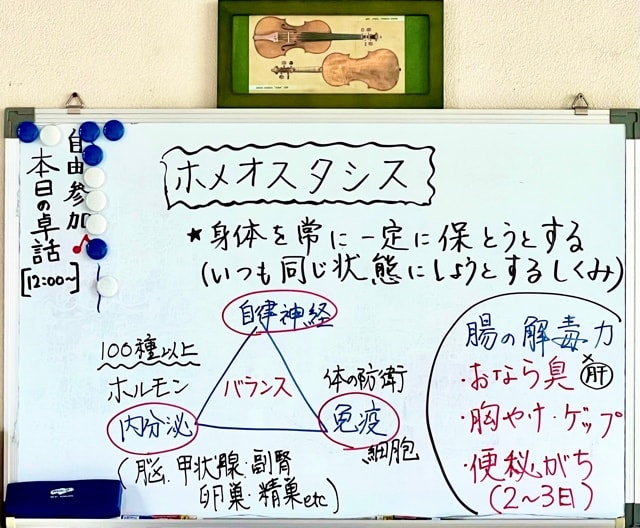 自由参加♪
本日の卓話
[12:00~]
ホメオスタシス
★身体を常に一定に保とうとする
(いつも同じ状態にしようとするしくみ)
自律神経
100種以上
ホルモン
内分泌
バランス
体の防衛
免疫
細胞
(脳、甲状腺・副腎
卵巣・精巣etc)
腸の解毒力
・おなら臭 ×肝
・胸やけ・ゲップ
・便秘がち
(2~3日)